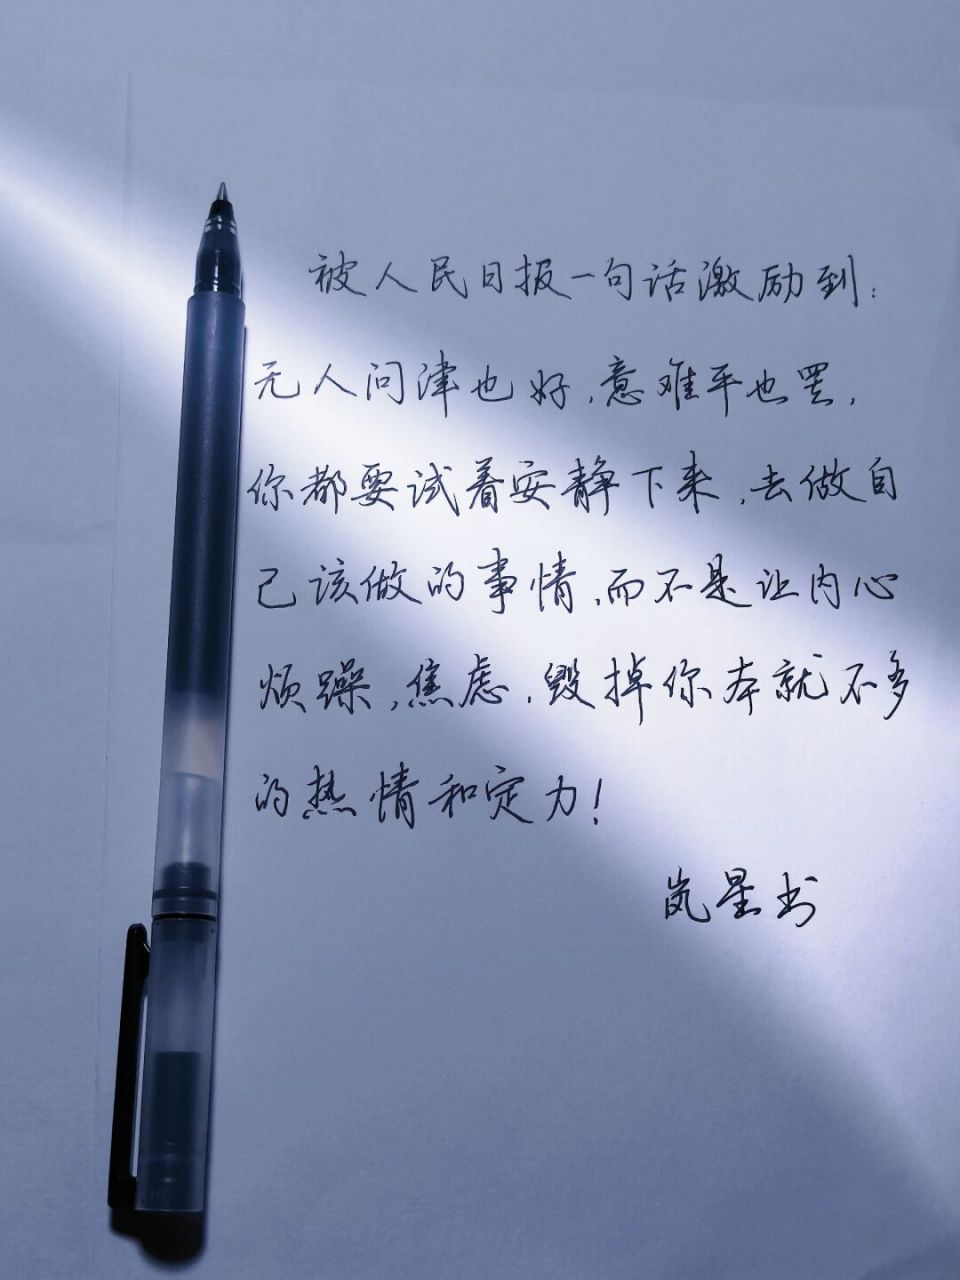 被人民日报一句话激励到:
无人问津也好,意难平也罢,
你都要试着安静下来,去做自
己该做的事情,而不是让内心
烦躁,焦虑,毁掉你本就不多
的热情和定力!
岚星书